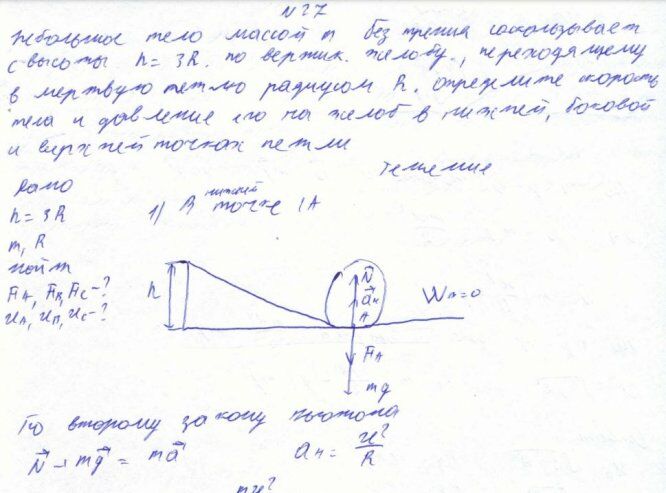 N 27
Небольшое тело массой m без трения соскальзывает
с высоты h = 3R. по вертик. желобу., переходящему
в мертвую петлю радиусом R. определите скорость
тела и давление его на желоб в нижней, боковой
и верхней точках петли
Решение
Дано
h = 3R
m, R
найти
FA, FB, FC -?
υA, υB, υC -?
1) В нижней точке (A
h
N⃗
a⃗н
A
Wп=0
FA
mg
По второму закону Ньютона
N⃗ + mg⃗ = ma⃗
aн = υ²/R
mυ²